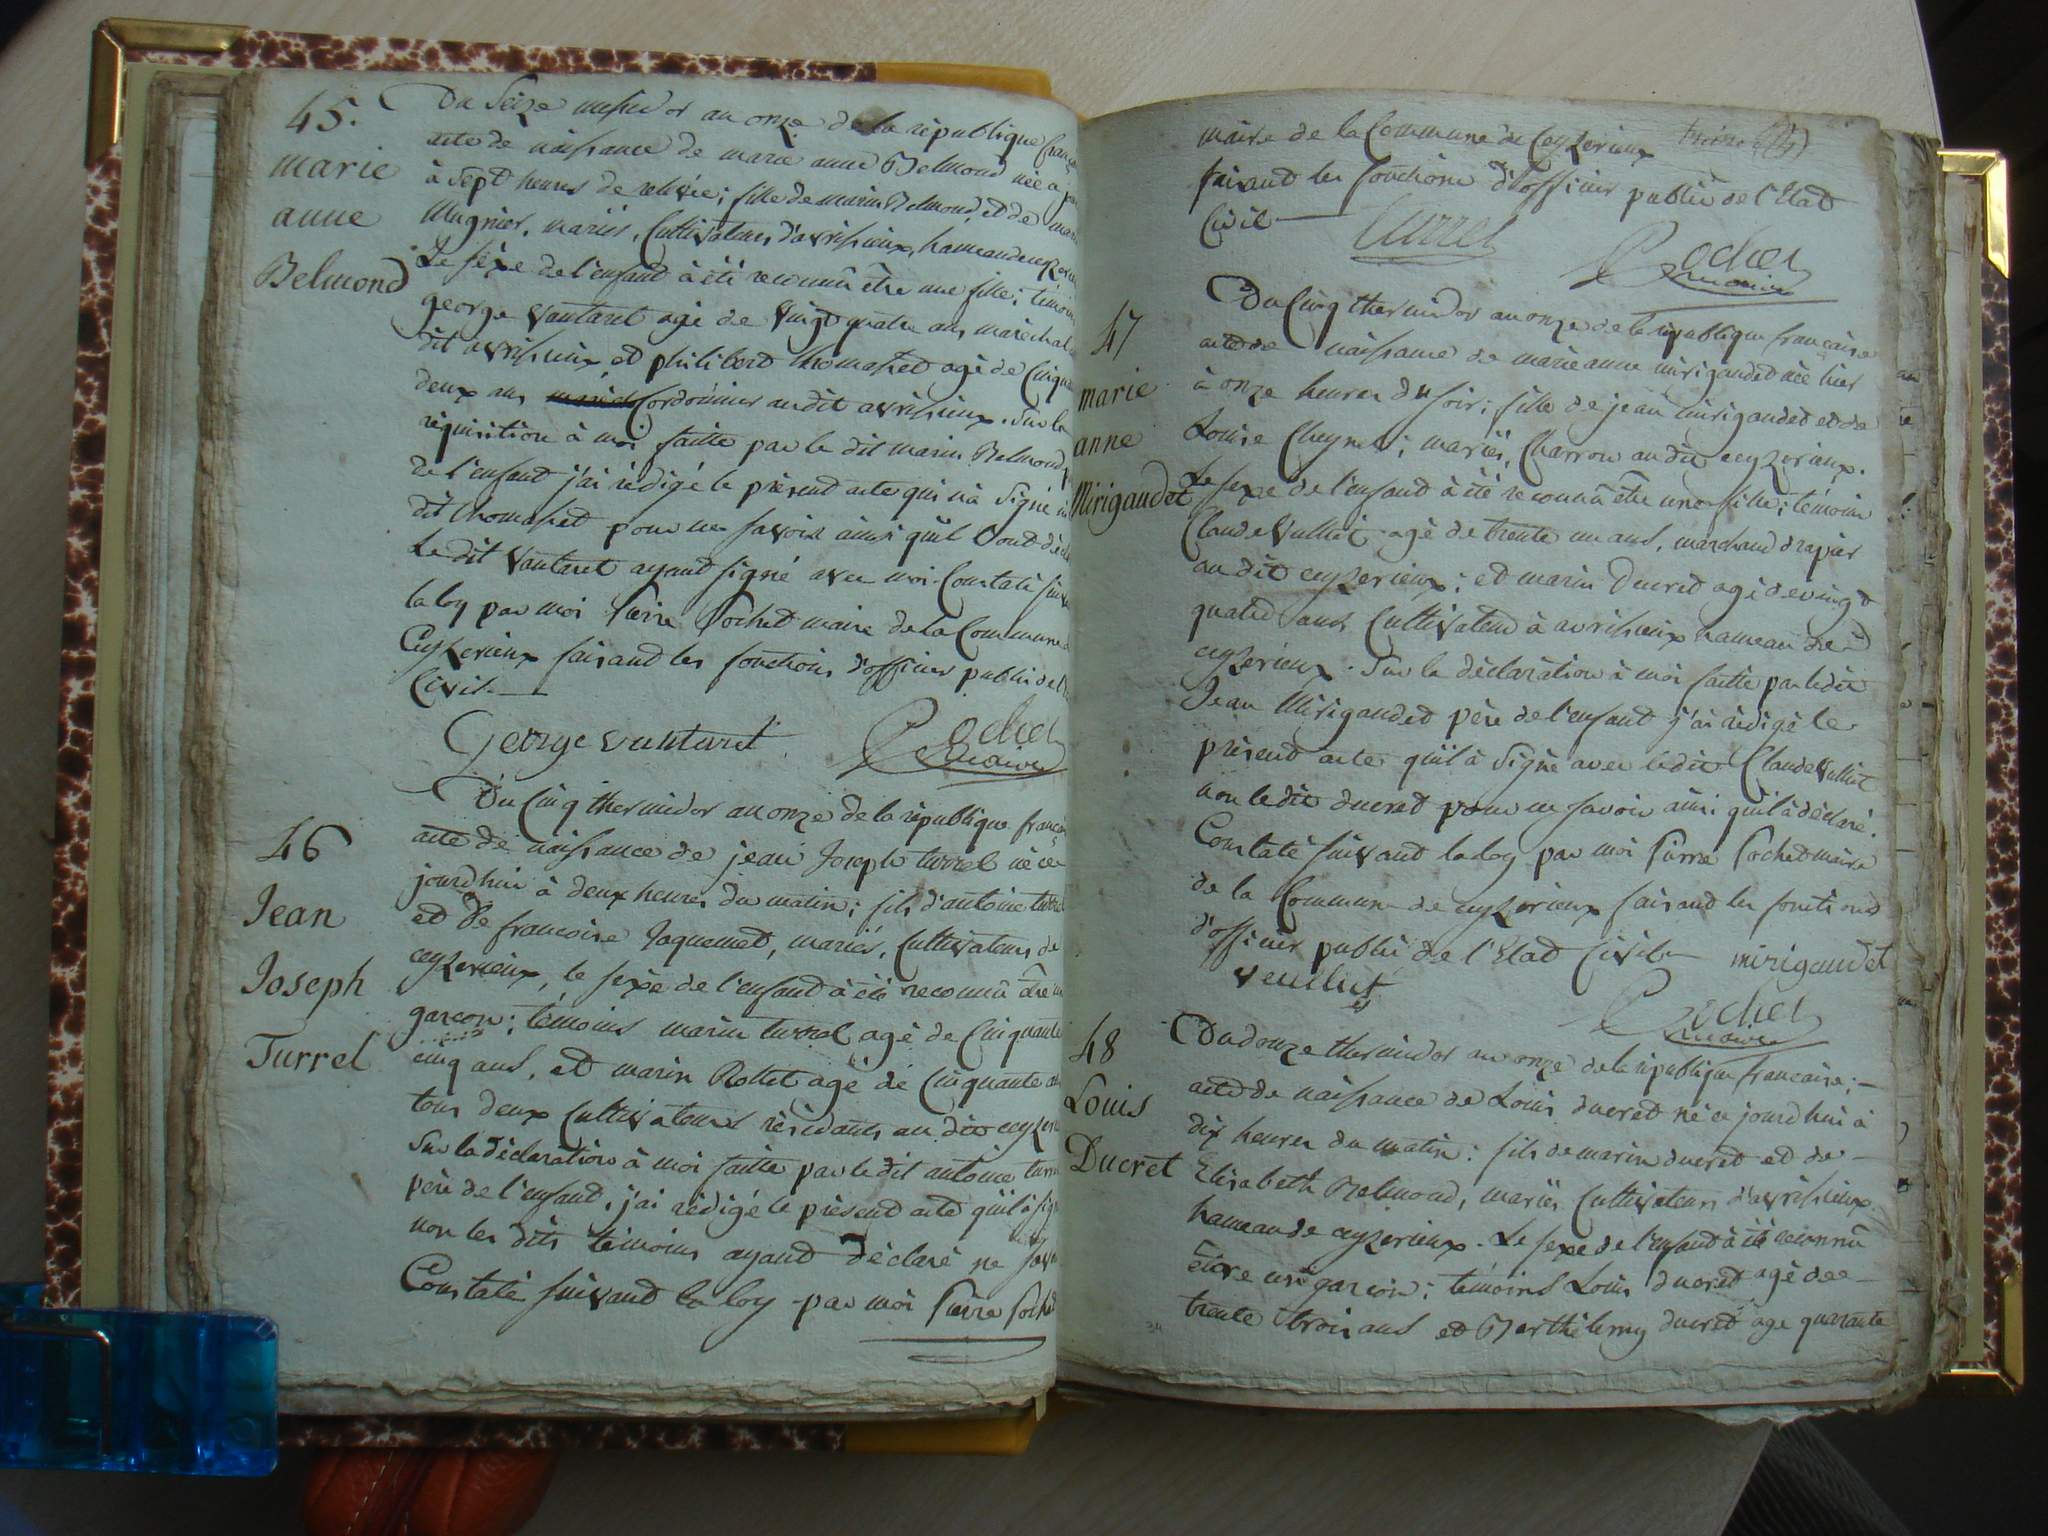 45.
marie
anne
Belmond
Du Seize messidor an onze de la république
acte de naissance de marie anne Belmond née
à sept heures de relevée; fille de marin Belmond, et de
Mugnier, mariés, Cultivateurs d'avrissieux, hameau de
Le sexe de l'enfant à été reconnû être une fille; témoins
george vantaret agé de vingt quatre ans maréchal
dit avrissieux, et philibert thomasset agé de
deux ans Cordonnier audit avrissieux. Sur la
réquisition à moi faitte par le dit marin Belmond
de l'enfant j'ai rédigé le présent acte qui n'a signé
dit thomasset pour ne savoir ainsi quil
Le dit vantaret ayant signé avec moi. Constaté
la loy par moi pierre Pochet maire de la Commune
Ceyzerieux faisant les fonctions d'officier public de
Civil.
George vantaret Pochet
maire
46
Jean
Joseph
Turrel
Du Cinq thermidor an onze de la république
acte de naissance de jean Joseph turrel né ce
jourdhui à deux heures du matin; fils d'antoine
et de francoise Jaquemet, mariés, Cultivateurs de
ceyzerieux, le sexe de l'enfant à été reconnû être
garcon; témoins marin turrel agé de Cinquante
cinq ans, et marin Rollet agé de Cinquante
tous deux Cultivateurs résidants au dit
Sur la déclaration à moi faitte par le dit antoine
père de l'enfant, j'ai rédigé le présent acte quil à
non les dits témoins ayant déclaré ne
Constaté suivant la loy par moi pierre
maire de la Commune de Ceyzerieux
faisant les fonctions d'officier public de l'Etat
Civil
Turrel Pochet
maire
47
marie
anne
Mirigaudet
Du Cinq thermidor an onze de la république francaise
acte de naissance de marie anne mirigaudet née hier
à onze heures du soir; fille de jean mirigaudet et de
Louise mariés, Charron au dit ceyzerieux.
Le sexe de l'enfant à été reconnû être une fille; témoins
Claude Vulliot agé de trente un ans, marchand drapier
au dit ceyzerieux; et marin Ducret agé de vingt
quatre ans Cultivateur à avrissieux hameau de
ceyzerieux. Sur la déclaration à moi faitte par le dit
Jean Mirigaudet père de l'enfant j'ai rédigé le
présent acte quil à signé avec le dit Claude Vulliot
non le dit ducret pour ne savoir ainsi quil à déclaré.
Constaté suivant la loy par moi pierre Pochet maire
de la Commune de ceyzerieux faisant les fonctions
d'officier public de l'Etat Civil mirigaudet
Pochet
maire
48
Louis
Ducret
Du douze thermidor an onze de la république francaise;
acte de naissance de Louis ducret né ce jourdhui à
dix heures du matin: fils de marin ducret et de
Elisabeth Belmond, mariés Cultivateurs d'avrissieux
hameau de ceyzerieux. Le sexe de l'enfant à été reconnû
être un garcon; témoins Louis ducret agé de
trente trois ans et Barthelemy ducret age quarante